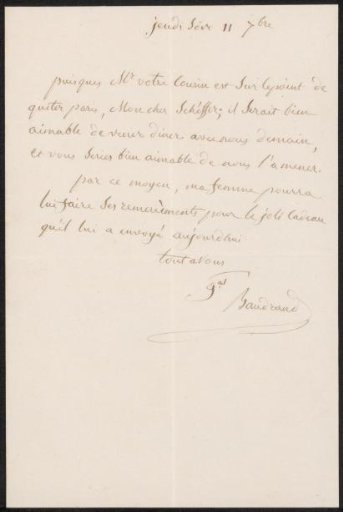 jeudi soir 11 7bre
puisque Mr votre Cousin est sur le point de
quiter paris, Mon cher Scheffer; il serait bien
aimable de venir diner avec nous demain,
et vous series bien aimable de nous l'amener.
par ce moyen, ma femme pourra
lui faire ses remerciments pour le joli Cadeau
qu'il lui a envoyé aujourdhui
tout a vous
Gal
Baudrand